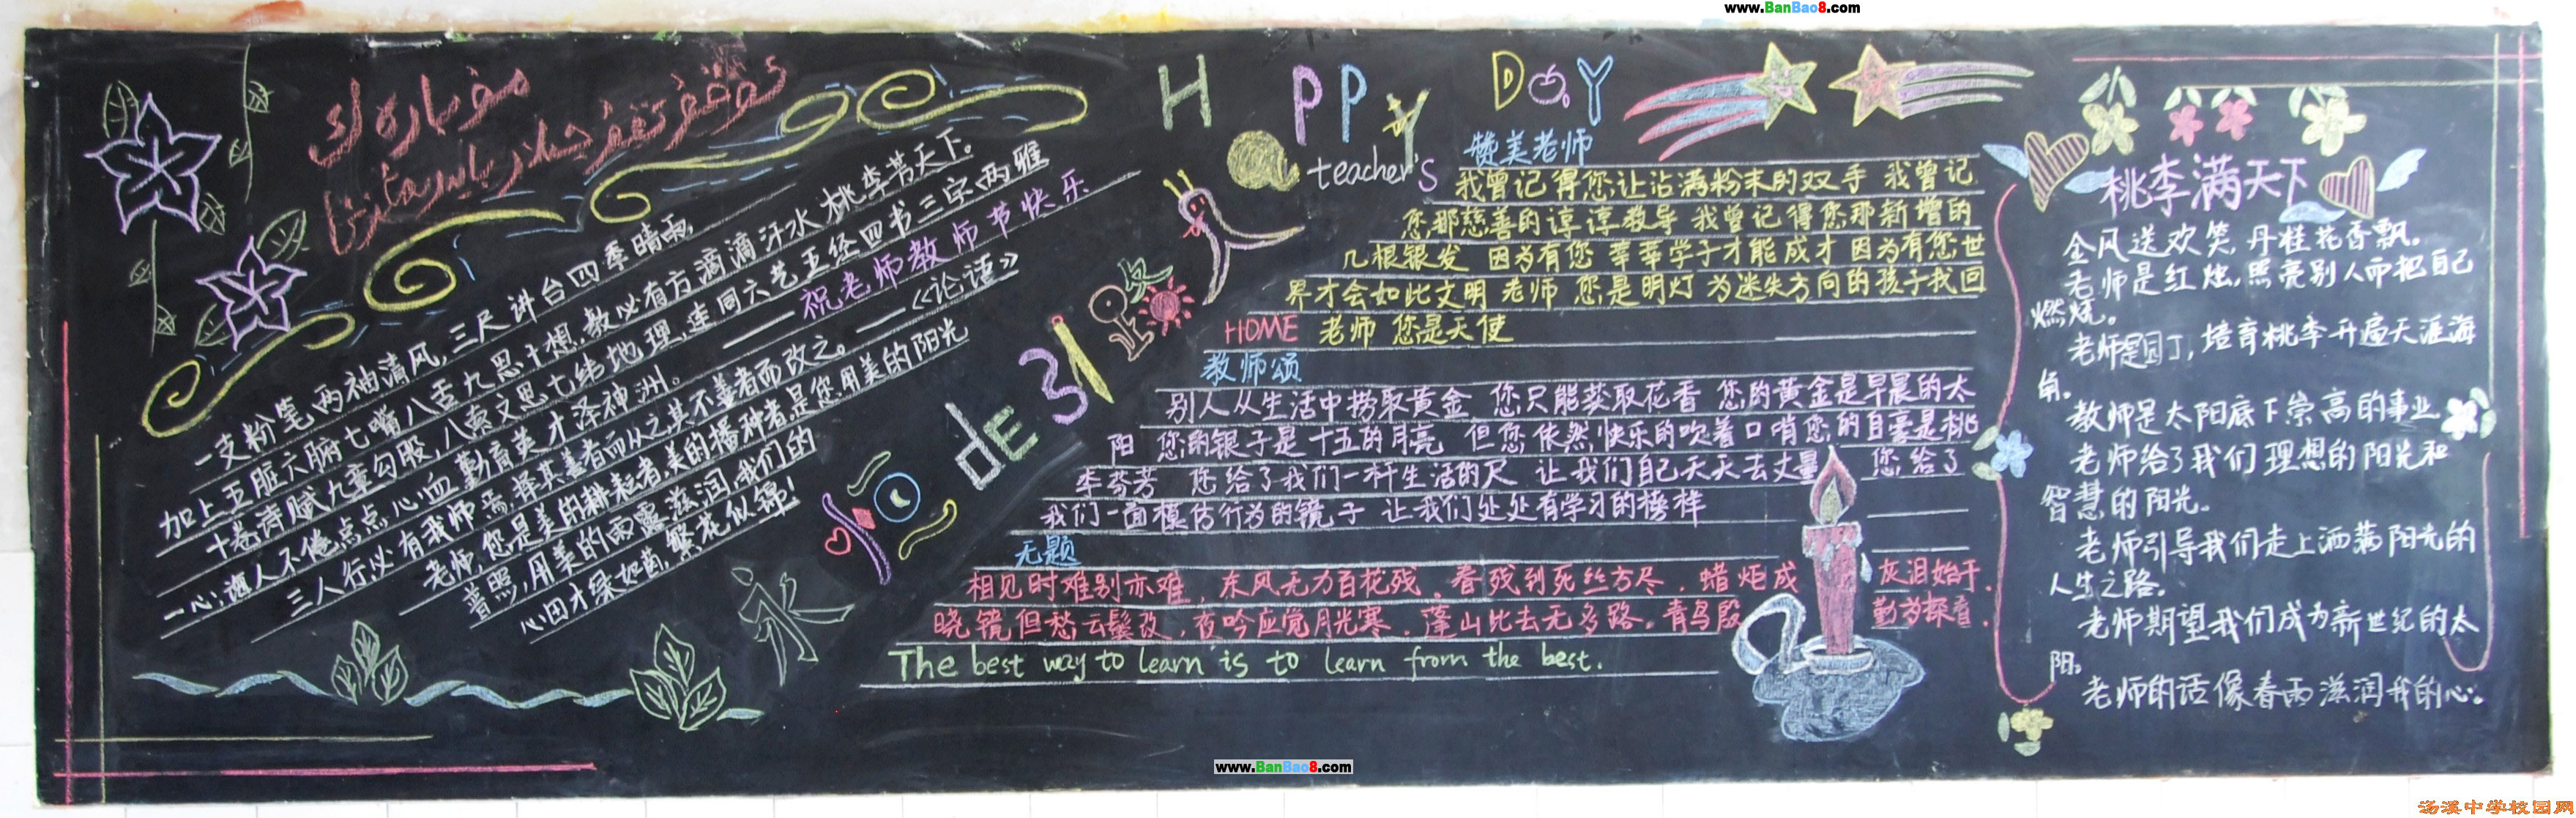 www.BanBao8.com
一支粉笔两袖清风,三尺讲台四季晴雨
加上五脏六腑七嘴八舌九思十想,教必有方滴滴汗水桃李芳天下。
十卷诗赋九章勾股,八索文思七纬地理,连同六艺五经四书三字两雅
一心:诲人不倦点点心血勤育英才泽神洲。
——祝老师教师节快乐
三人行,必有我师焉,择其善者而从之其不善者而改之。——《论语》
老师,您是美的耕耘者,美的播种者,是您用美的阳光
普照,用美的雨露滋润,我们的
心田才绿如茵,繁花似锦!
HAPPY DAY
teacher's
赞美老师
我曾记得您让沾满粉末的双手 我曾记
您那慈善的谆谆教导 我曾记得您那新增的
几根银发 因为有您 莘莘学子才能成才 因为有您世
界才会如此文明 老师 您是明灯 为迷失方向的孩子找回
HOME 老师 您是天使
教师颂
别人从生活中捞取黄金 您只能获取花香 您的黄金是早晨的太
阳 您的银子是十五的月亮 但您依然快乐的吹着口哨您的自豪是桃
李芬芳 您给了我们一杆生活的尺 让我们自己天天去丈量 您给了
我们一面模估行为的镜子 让我们处处有学习的榜样
无题
相见时难别亦难,东风无力百花残。春残到死丝方尽,蜡炬成灰泪始干.
晓镜但愁云鬓改,夜吟应觉月光寒.蓬山比去无多路。青鸟殷勤为探看.
The best way to learn is to learn from the best.
桃李满天下
金风送欢笑,丹桂花香飘。
老师是红烛,照亮别人而把自己
燃烧。
老师是园丁,培育桃李升遍天涯海
角。
教师是太阳底下崇高的事业
老师给了我们理想的阳光和
智慧的阳光。
老师引导我们走上洒满阳光的
人生之路。
老师期望我们成为新世纪的太
阳。
老师的话像春雨滋润我的心。
www.BanBao8.com
汤溪中学校园网